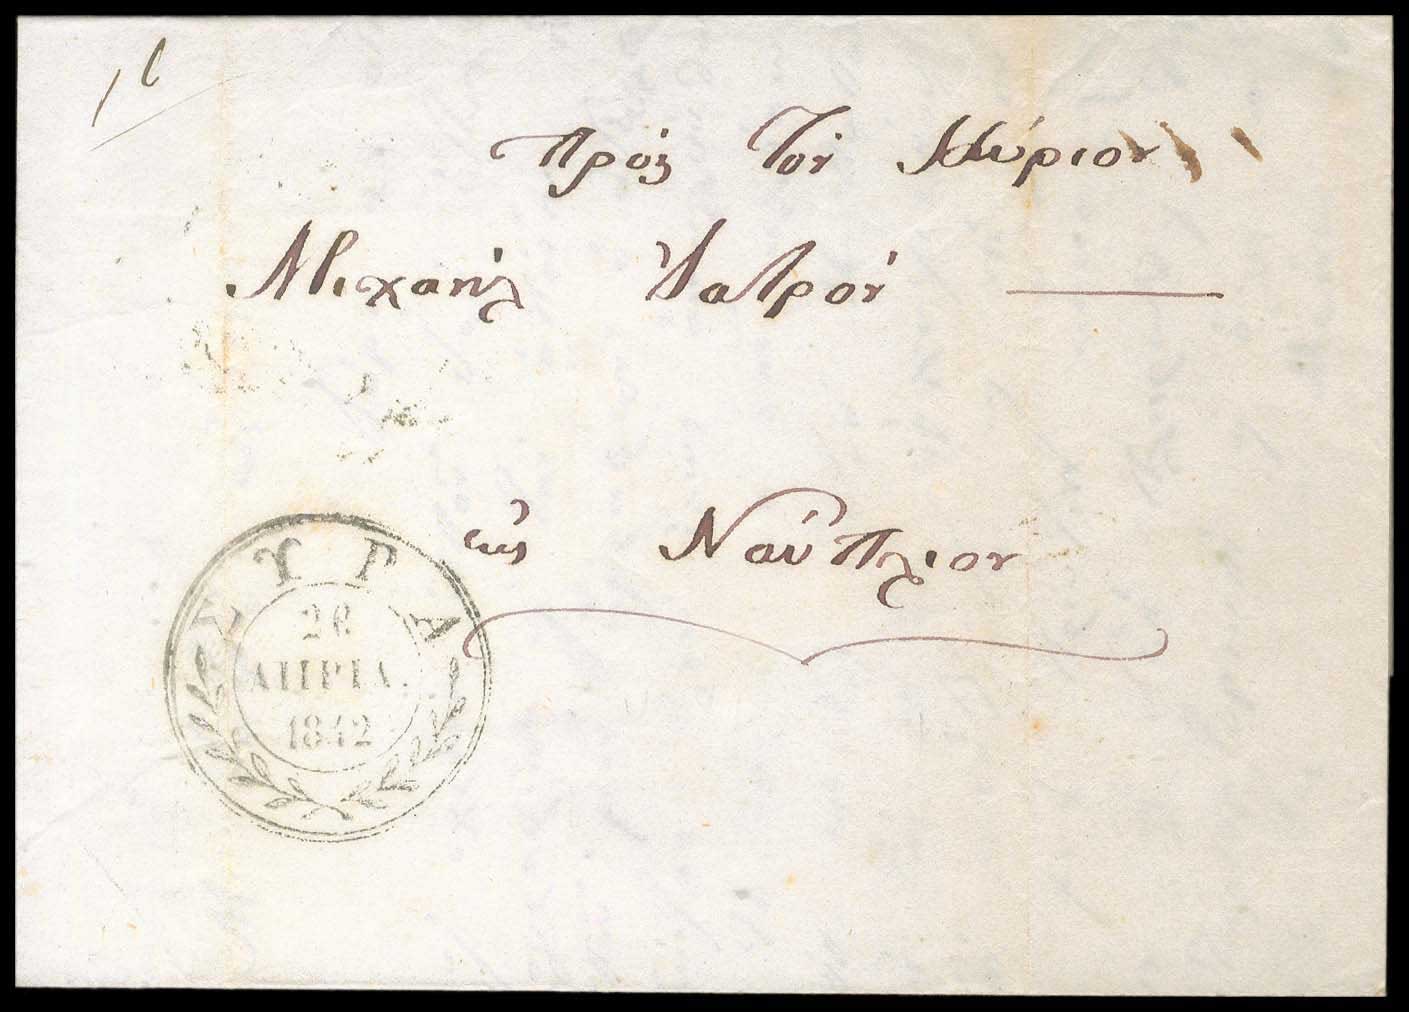 Πρὸς Τὸν Κύριον
Μιχαὴλ Ἰατρόν
εἰς Ναύπλιον
ΣΥΡΑ
ΑΠΡΙΛ.
1842